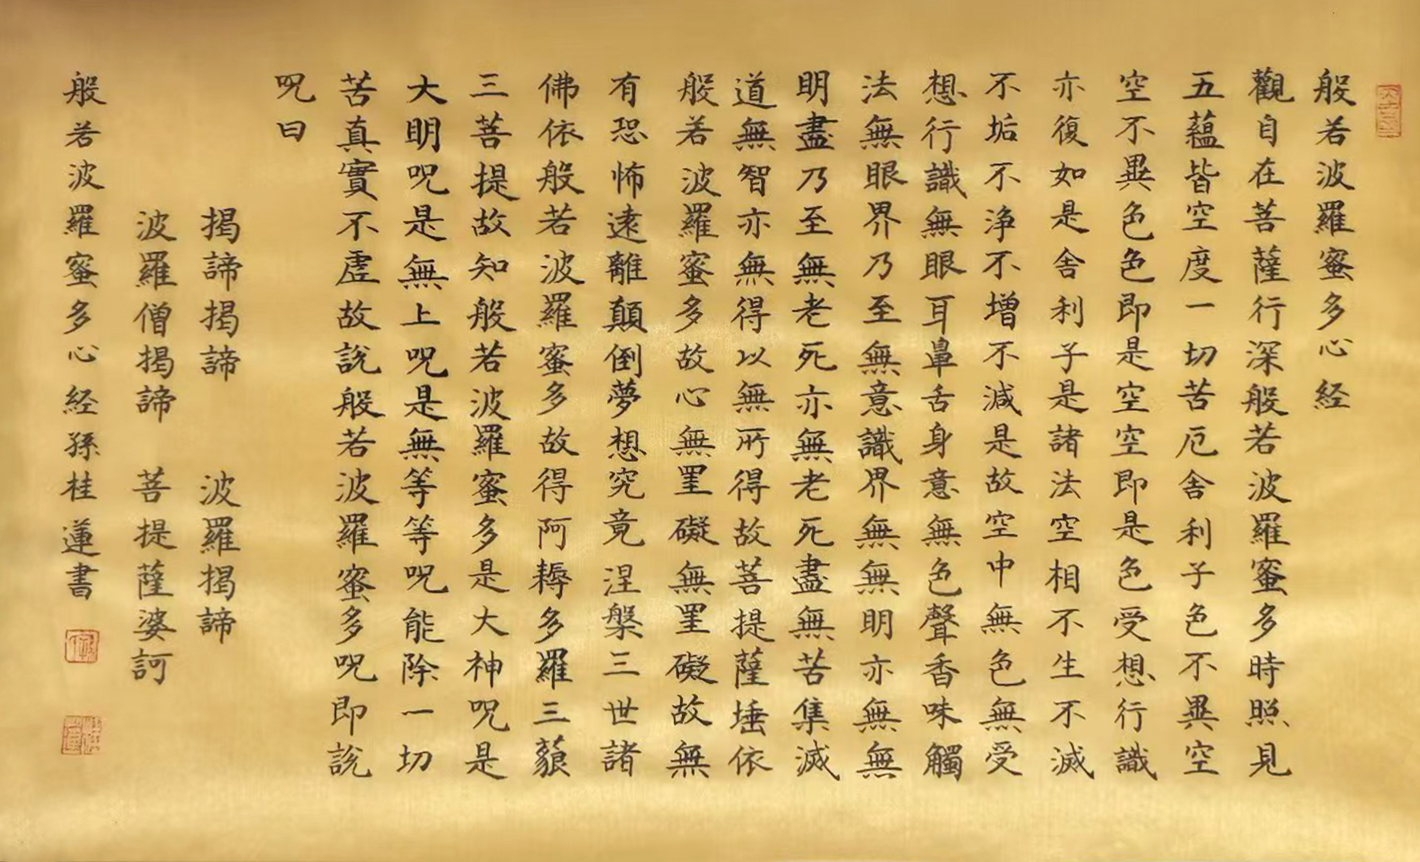 般若波羅蜜多心経
觀自在菩薩行深般若波羅蜜多時照見
五蘊皆空度一切苦厄舍利子色不異空
空不異色色即是空空即是色受想行識
亦復如是舍利子是諸法空相不生不滅
不垢不淨不增不減是故空中無色無受
想行識無眼耳鼻舌身意無色聲香味觸
法無眼界乃至無意識界無無明亦無無
明盡乃至無老死亦無老死盡無苦集滅
道無智亦無得以無所得故菩提薩埵依
般若波羅蜜多故心無罣礙無罣礙故無
有恐怖遠離顛倒夢想究竟涅槃三世諸
佛依般若波羅蜜多故得阿耨多羅三藐
三菩提故知般若波羅蜜多是大神呪是
大明呪是無上呪是無等等呪能除一切
苦真實不虛故説般若波羅蜜多呪即説
呪曰
揭諦揭諦 波羅揭諦
波羅僧揭諦 菩提薩婆訶
般若波羅蜜多心経孫桂蓮書